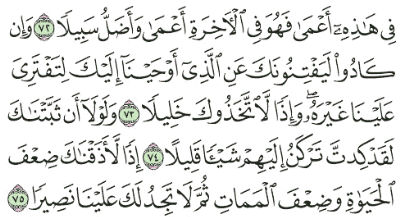 فِى هَٰذِهِۦٓ أَعْمَىٰ فَهُوَ فِى ٱلْأَخِرَةِ أَعْمَىٰ وَأَضَلُّ سَبِيلًا ﴿٧٢﴾ وَإِن
كَادُوا۟ لَيَفْتِنُونَكَ عَنِ ٱلَّذِىٓ أَوْحَيْنَآ إِلَيْكَ لِتَفْتَرِىَ
عَلَيْنَا غَيْرَهُۥ ۖ وَإِذًا لَّٱتَّخَذُوكَ خَلِيلًا ﴿٧٣﴾ وَلَوْلَآ أَن ثَبَّتْنَٰكَ
لَقَدْ كِدتَّ تَرْكَنُ إِلَيْهِمْ شَيْـًٔا قَلِيلًا ﴿٧٤﴾ إِذًا لَّأَذَقْنَٰكَ ضِعْفَ
ٱلْحَيَوٰةِ وَضِعْفَ ٱلْمَمَاتِ ثُمَّ لَا تَجِدُ لَكَ عَلَيْنَا نَصِيرًا ﴿٧٥﴾